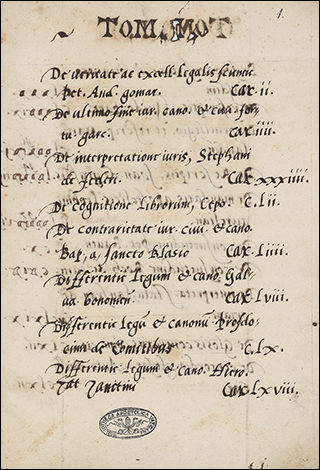 1.
TOM. MOT
De veritate ac excell. Legalis scientie
Pet. And. gomar. Car. ii.
De ultimo fine iur. cano. & civi. for
tu. garc. Car. iiii.
De interpretatione iuris, Stephani
de Car. xxxiiii.
De Cognitione Librorum, Cepo. C. Lii.
De contrarietate iur. civi. & cano.
Bap. a, sancto Blasio Car. Liiii.
Differentie Legum & cano. Gal-
va. bononien. Car. Lviii.
Differentie Legū & canonū Prosdo-
cimi de Comitibus C. Lx.
Differentie Legum & cano. Hiero.
Zanetini Car. Lxviii.